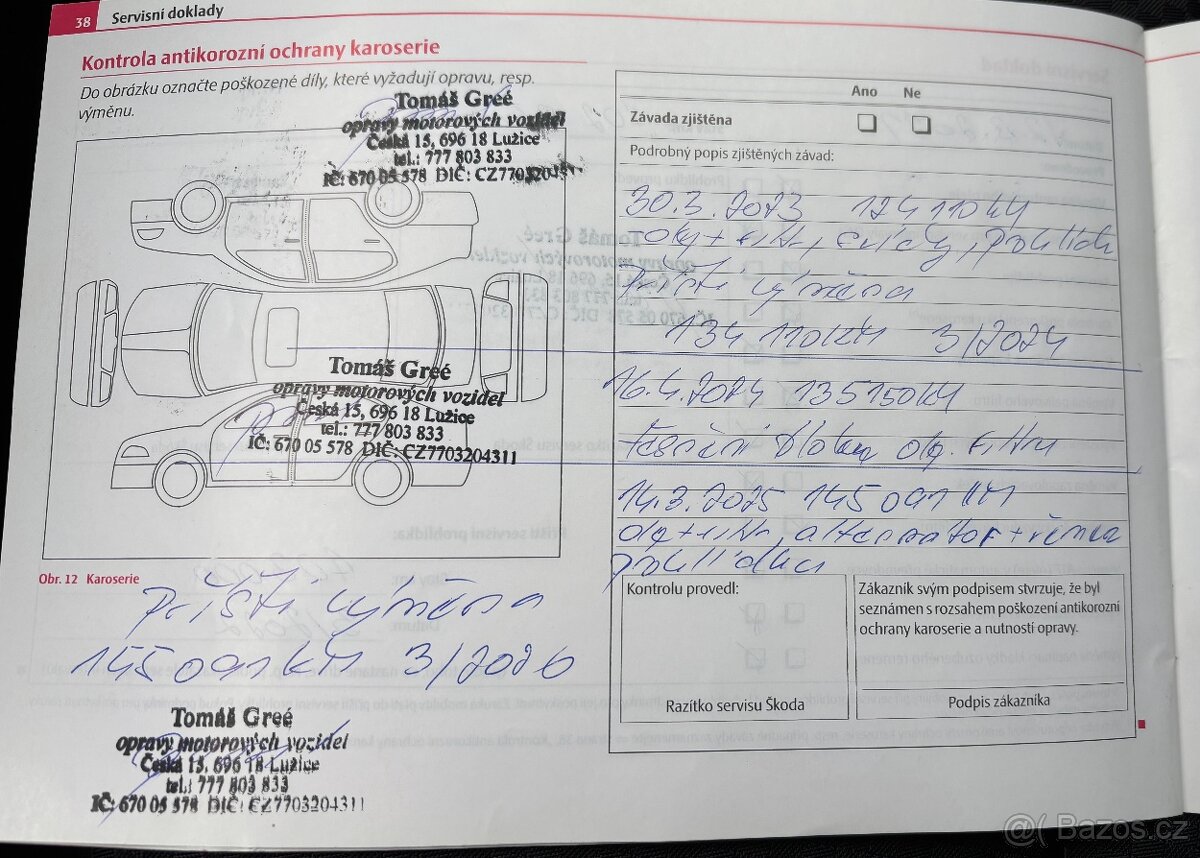 38 Servisní doklady
Kontrola antikorozní ochrany karoserie
Do obrázku označte poškozené díly, které vyžadují opravu, resp.
výměnu.
Tomáš Greé
opravy motorových vozidel
Česká 15, 696 18 Lužice
tel.: 777 803 833
IČ: 670 05 578 DIČ: CZ7703204
Tomáš Greé
opravy motorových vozidel
Česká 15, 696 18 Lužice
tel.: 777 803 833
IČ: 670 05 578 DIČ: CZ7703204311
Obr. 12 Karoserie
Příští výměna
155091KM 3/2026
Tomáš Greé
opravy motorových vozidel
Česká 15, 696 18 Lužice
tel.: 777 803 833
IČ: 670 05 578 DIČ: CZ7703204311
Ano Ne
Závada zjištěna
Podrobný popis zjištěných závad:
30.3.2023 124110KM
olej + filtr, svíčky,
Příští výměna
134110KM 3/2024
16.4.2024 135150KM
těsnění bloku ol. filtru
14.3.2025 145091KM
olej + filtr, alternator + řemen
Kontrolu provedl:
Razítko servisu Škoda
Zákazník svým podpisem stvrzuje, že byl
seznámen s rozsahem poškození antikorozní
ochrany karoserie a nutností opravy.
Podpis zákazníka
Bazoš.cz